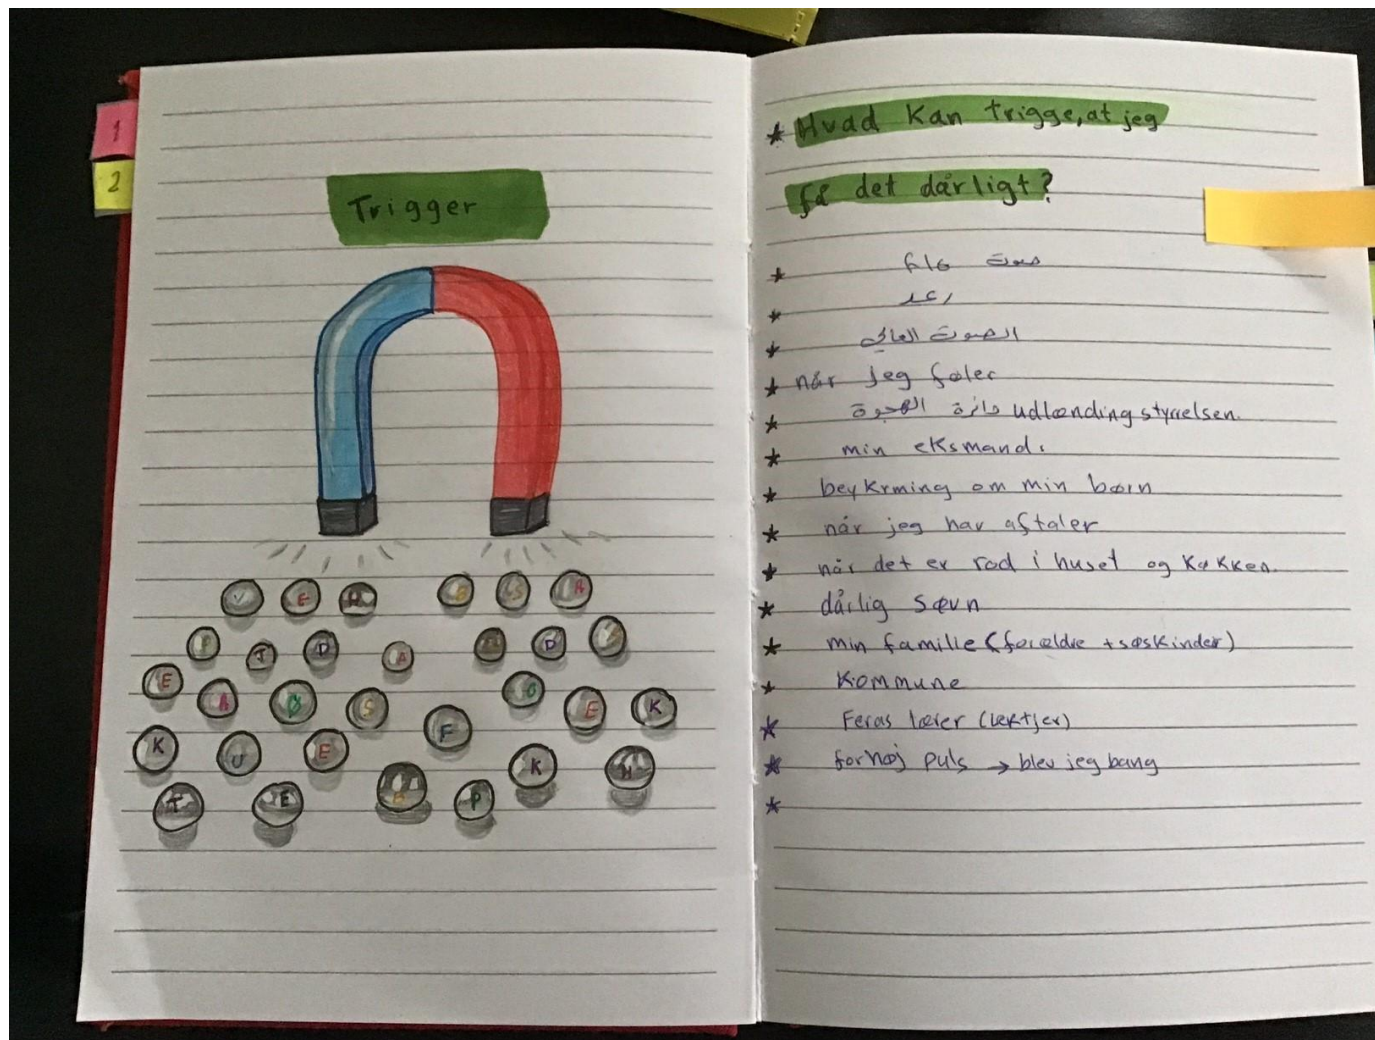 1
2
Trigger
V E H B S A
P J D A D
E A Ø S O E K
K U E F K H
T E P
* Hvad kan trigge, at jeg
få det dårligt?
* صوت
* رعد
* الصوت العالي
* når jeg føler
* دائرة الهجرة udlændingstyrrelsen.
* min eksmand.
* beykrming om min børn
* når jeg har aftaler
* når det er rod i huset og køkken.
* dårlig søvn
* min familie (forældre + søskinder)
* Kommune
* Feras lærer (lektjer)
* for høj puls → blev jeg bang
*